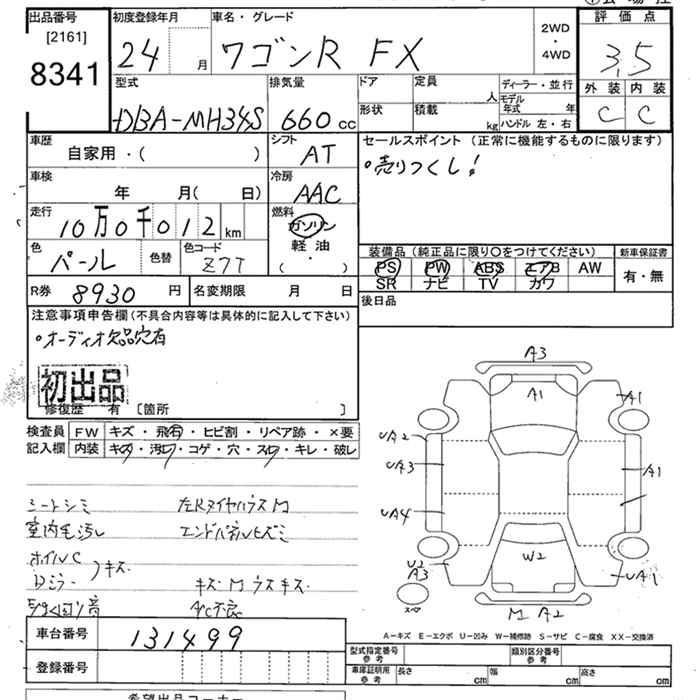 出品番号 初度登録年月 車名・グレード 評価点
[2161] 2WD
8341 24 月 ワゴンR FX ・4WD 3.5
型式 排気量 ドア 定員 ディーラー・並行 外装 内装
DBA-MH34S 660 cc 形状 積載 人 kg モデル年式 年 ハンドル 左・右 C C
車歴 シフト セールスポイント (正常に機能するものに限ります)
自家用・( ) AT ・売りつくし!
車検 冷房
年 月( 日) AAC
走行 燃料
10万0千012 km ガソリン
軽油
色 色替 色コード 装備品 (純正品に限り○をつけてください) 新車保証書
パール Z7T ( ) PS PW ABS エアB AW 有・無
SR ナビ TV カワ
R券 8930 円 名変期限 月 日 後日品
注意事項申告欄(不具合内容等は具体的に記入して下さい)
・オーディオ欠品穴有
初出品
修復歴 有 [箇所 ]
検査員 FW キズ・飛石・ヒビ割・リペア跡・×要
記入欄 内装 キズ・汚れ・コゲ・穴・スレ・キレ・破レ
A3
A1 A1
UA2
UA3 A1
UA4
W2
U2
A3 UA1
スペア
M A2
シートシミ 左Rタイヤハウス M
室内毛汚レ エンドパネルヒズミ
ホイルC
Dミラー 〉キズ キズ M ウスキズ
A/C不良
A-キズ E-エクボ U-凹み W-補修跡 S-サビ C-腐食 XX-交換済
車台番号 131499 型式指定番号 参考 類別区分番号 参考
登録番号 車庫証明用 参考 長さ cm 幅 cm 高さ cm
希望出品コーナー